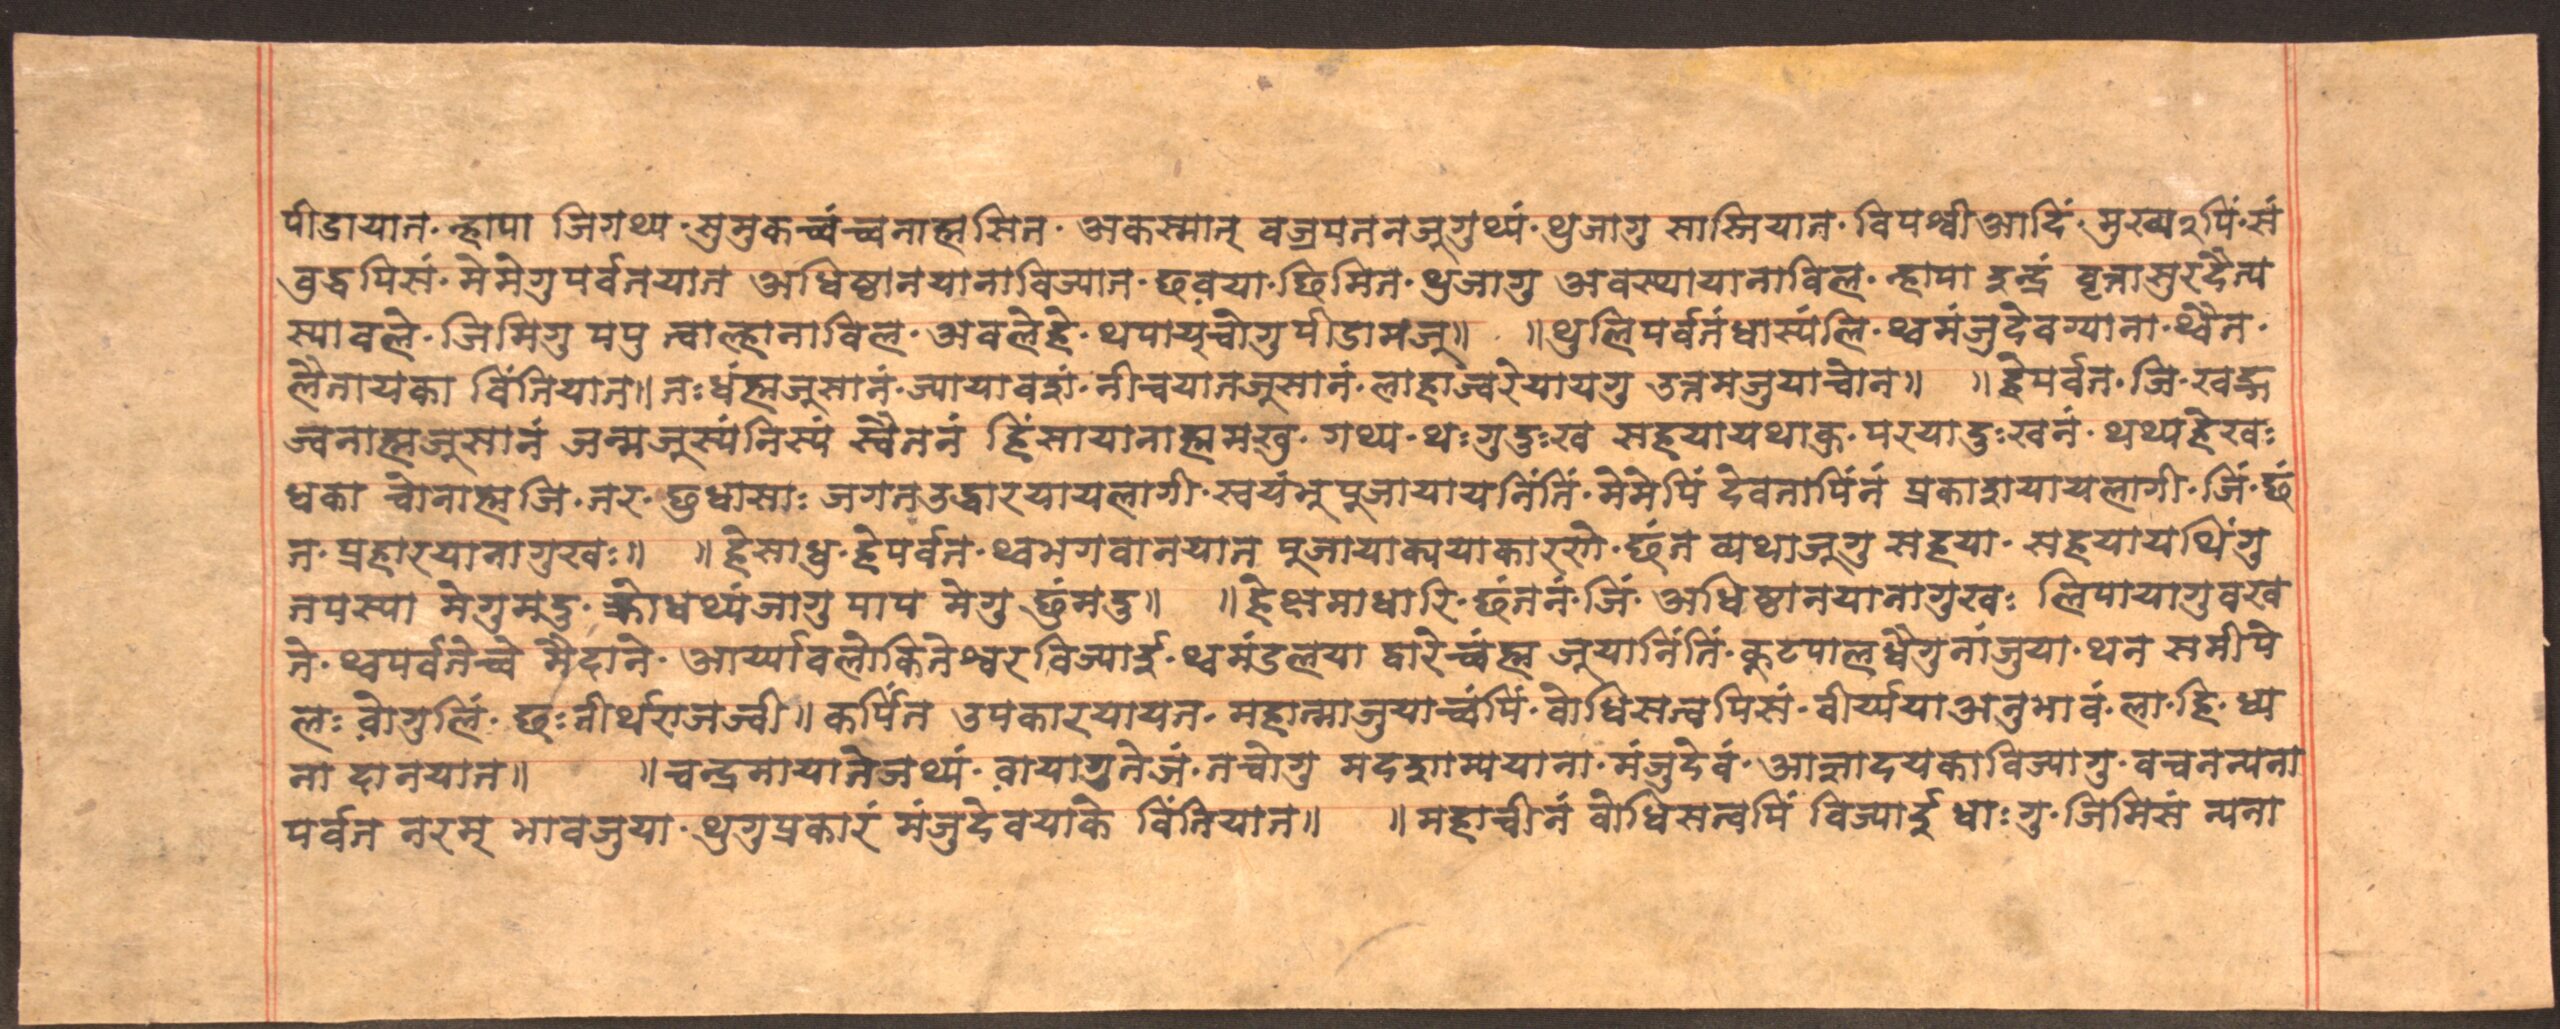 पीडायात· न्हापा जिगथ्य· सुमुकच्वंच्वनाह्मसित· अकस्मात् वज्रपतनजूगुथ्यं· थुजागु सास्तियात· विपश्वीआदिं· मुख्य२पिं· सं
बुद्धपिसं· मेमेगुपर्वतयात अधिष्ठानयानाविज्यात· छ्वया· छिमित· थुजागु अवस्थायानाविल· न्हापा इन्द्रं वृत्रासुरदैत्य
स्यावले· जिमिगु पपु त्वाल्हानाविल· अवलेहे· थपायच्वोगु पीडामजू॥ ॥थुलिपर्वतंधास्यंलि· थ्वमंजुदेवग्याना· थ्वैत·
लैनायका विंतियात॥ तःधंह्मजुसानं· ज्यायावशं· नीचयातजुसानं· लाहाज्वरेयायगु उत्तमजुयाच्वोन॥ ॥हेपर्वत· जि· खड्ग
ज्वनाह्मजुसानं जन्मजूस्यंनिस्यं स्वैतनं हिंसायानाह्ममखु· गथ्य· थःगुदुःख सहयायथाकु· परयादुःखनं· थथ्यहेखः
धका च्वोनाह्मजि· तर· छुधासाः जगतउद्धारयायलागी· स्वयंभुपूजायायनिंतिं· मेमेपिं देवतापिंनं प्रकाशयायलागी· जिं· छं
त· प्रहारयानागुखः॥ ॥हेसाधु· हेपर्वत· थ्वभगवानयात पूजायाक्ययाकारणे· छंत व्यथाजूगु सहया· सहयायथिंगु
तपस्या मेगुमदु· क्रोधथ्यंजागु पाप मेगु छुंमदु॥ ॥हेक्षमाधारि· छंतनं· जिं· अधिष्ठानयानागुखः लिपायागुवख
ते· थ्वपर्वतेच्वे मैदाने· आर्य्यावलोकितेश्वरविज्याई· थ्वमंडलया द्वारेच्वंह्म जूयानिंतिं· कूटपालधैगुनांजुया· थन समीपे
लः वोगुलिं· छः तीर्थराजज्वी॥ कर्पित उपकारयायत· महात्माजुयाच्वंपिं· बोधिसत्वपिसं· वीर्य्ययाअनुभावं· ला· हि· ध्य
ना दानयात॥ ॥चन्द्रमायातेजथ्यं· वायागुतेजं· तच्वोगु मदशाम्ययाना· मंजुदेवं· आज्ञादयकाविज्यागु· वचनन्यना
पर्वत नरम् भावजुया· थुगुप्रकारं मंजुदेवयाके विंतियात॥ ॥महाचीनं बोधिसत्वपिं विज्याई धाःगु· जिमिसं न्यना